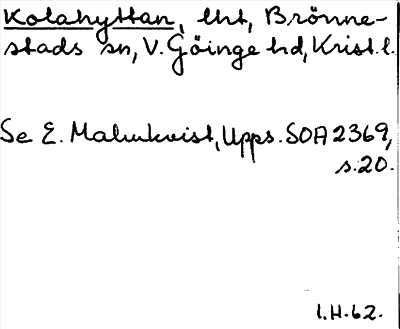 Kolahyttan, lht, Brönne-
stads sn, V. Göinge hd, Krist. l.
Se E. Malmkvist, Upps. SOA 2369,
s. 20.
1.H.62.